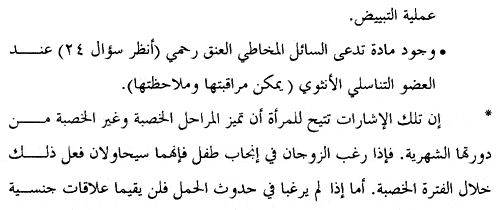 عملية التبييض.
• وجود مادة تدعى السائل المخاطي العنق رحمي (أنظر سؤال ٢٤) عند
العضو التناسلي الأنثوي ( يمكن مراقبتها وملاحظتها).
* إن تلك الإشارات تتيح للمرأة أن تميز المراحل الخصبة وغير الخصبة من
دورتها الشهرية. فإذا رغب الزوجان في إنجاب طفل فإنهما سيحاولان فعل ذلك
خلال الفترة الخصبة. أما إذا لم يرغبا في حدوث الحمل فلن يقيما علاقات جنسية